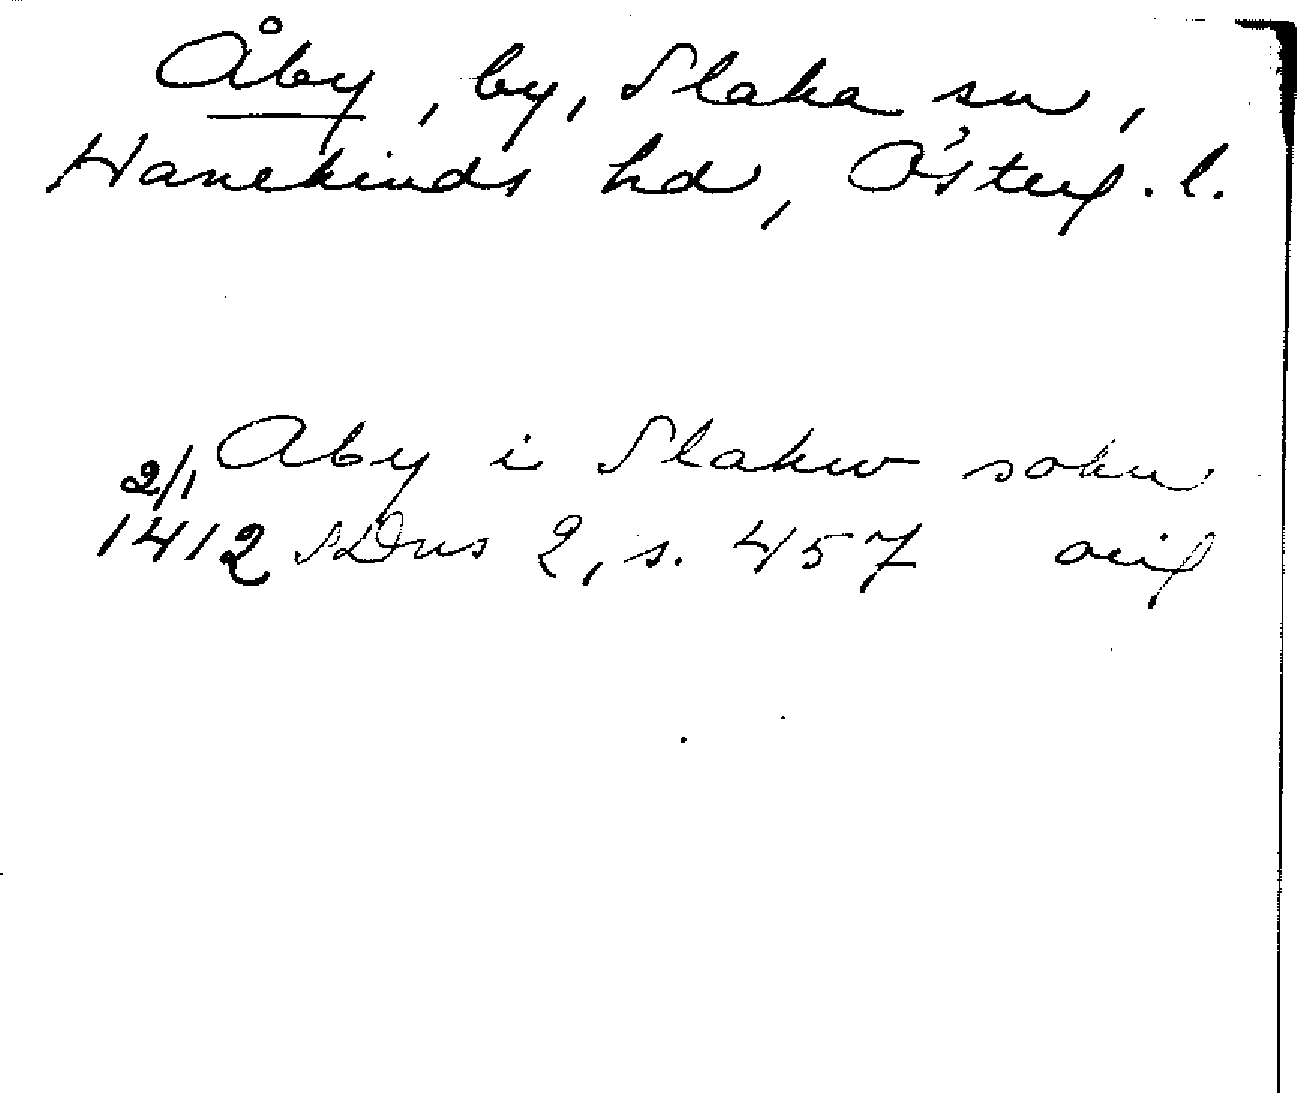 Åby, by, Slaka sn,
Hanekinds hd, Österg. l.
Aby i Slakw sokn
2/1
1412 SDns 2, s. 457 orig